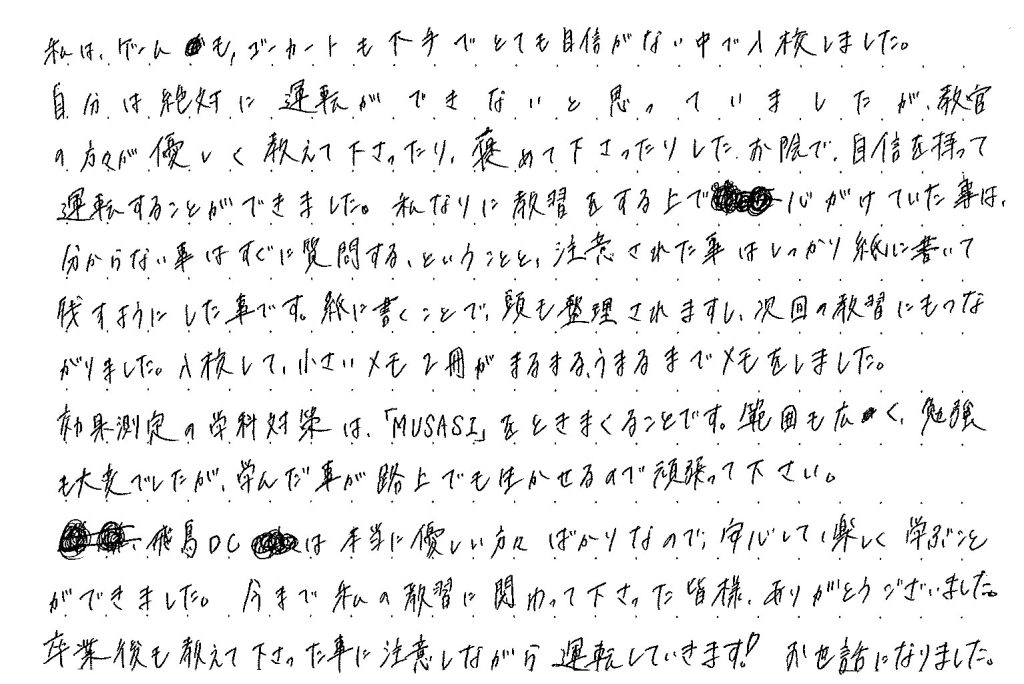 私は、ゲームも、ゴーカートも下手でとても自信がない中で入校しました。
自分は絶対に運転ができないと思っていましたが、教官
の方々が優しく教えて下さったり、褒めて下さったりしたお陰で、自信を持って
運転することができました。私なりに教習をする上で心がけていた事は、
分からない事はすぐに質問する、ということと、注意された事はしっかり紙に書いて
残すようにした事です。紙に書くことで、頭も整理されますし、次回の教習にもつな
がりました。入校して、小さいメモ2冊がまるまるうまるまでメモをしました。
効果測定の学科対策は、「MUSASI」をときまくることです。範囲も広く、勉強
も大変でしたが、学んだ事が路上でも生かせるので頑張って下さい。
飛鳥DCは本当に優しい方々ばかりなので、安心して楽しく学ぶこと
ができました。今まで私の教習に関わって下さった皆様、ありがとうございました。
卒業後も教えて下さった事に注意しながら運転していきます!お世話になりました。